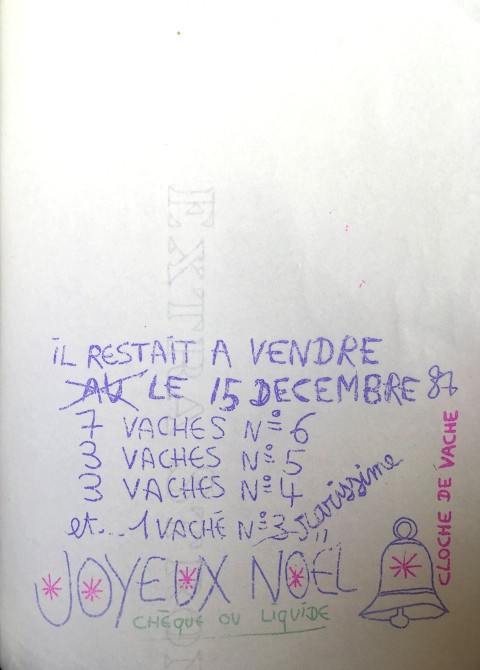 IL RESTAIT A VENDRE
AU LE 15 DECEMBRE 87
7 VACHES N° 6
3 VACHES N° 5
3 VACHES N° 4
et... 1 VACHE N° 3 rarissime
JOYEUX NOËL
CHÈQUE OU LIQUIDE
CLOCHE DE VACHE